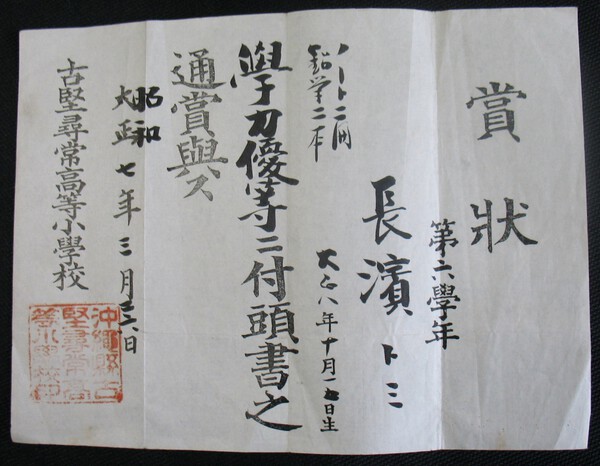 賞狀
第六學年
長濱トミ
大正八年十月 日生
ノート二冊
鉛筆二本
學力優等ニ付頭書之
通賞與ス
昭和
大正七年三月 日
古堅尋常高等小學校
沖繩縣古
堅尋常高
等小學校印